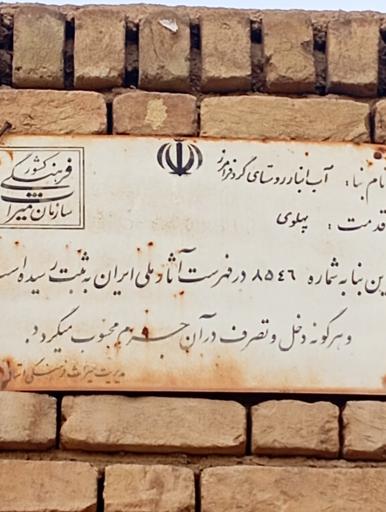 نام بنا: آب انبار روستای گردفرامرز
قدمت: پهلوی
سازمان میراث فرهنگی کشور
این بنا به شماره ۸۵۴۶ در فهرست آثار ملی ایران به ثبت رسیده است
و هرگونه دخل و تصرف در آن جرم محسوب میگردد.
مدیریت میراث فرهنگی استان